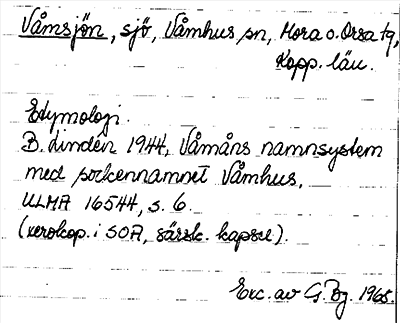 Våmsjön, sjö, Våmhus sn, Mora o. Orsa tg,
Kopp. län.
Etymologi.
B. Lindén 1944, Våmåns namnsystem
med sockennamnet Våmhus,
ULMA 16544, s. 6.
(xerokop. i SOA, särsk. kapsel).
Exc. av G. Bg. 1965.